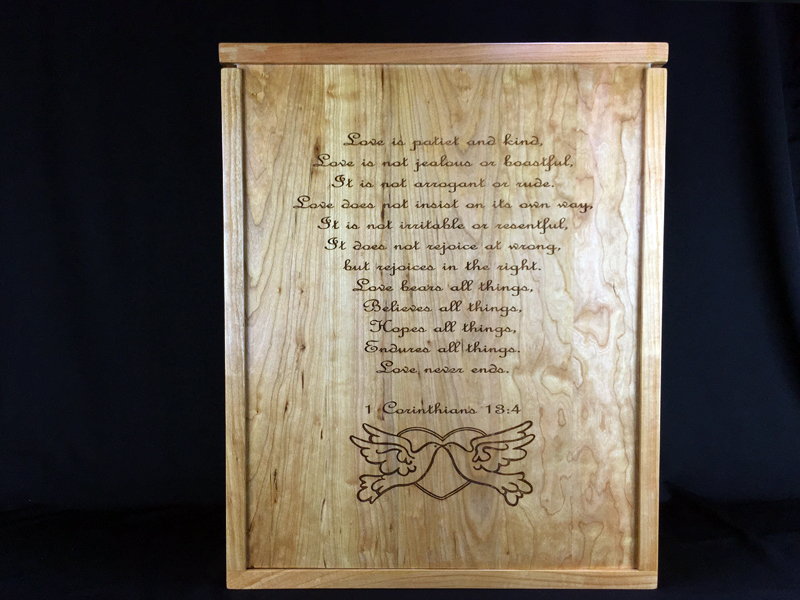 Love is patiet and kind,
Love is not jealous or boastful,
It is not arrogant or rude.
Love does not insist on its own way,
It is not irritable or resentful,
It does not rejoice at wrong,
but rejoices in the right.
Love bears all things,
Believes all things,
Hopes all things,
Endures all things.
Love never ends.
1 Corinthians 13:4